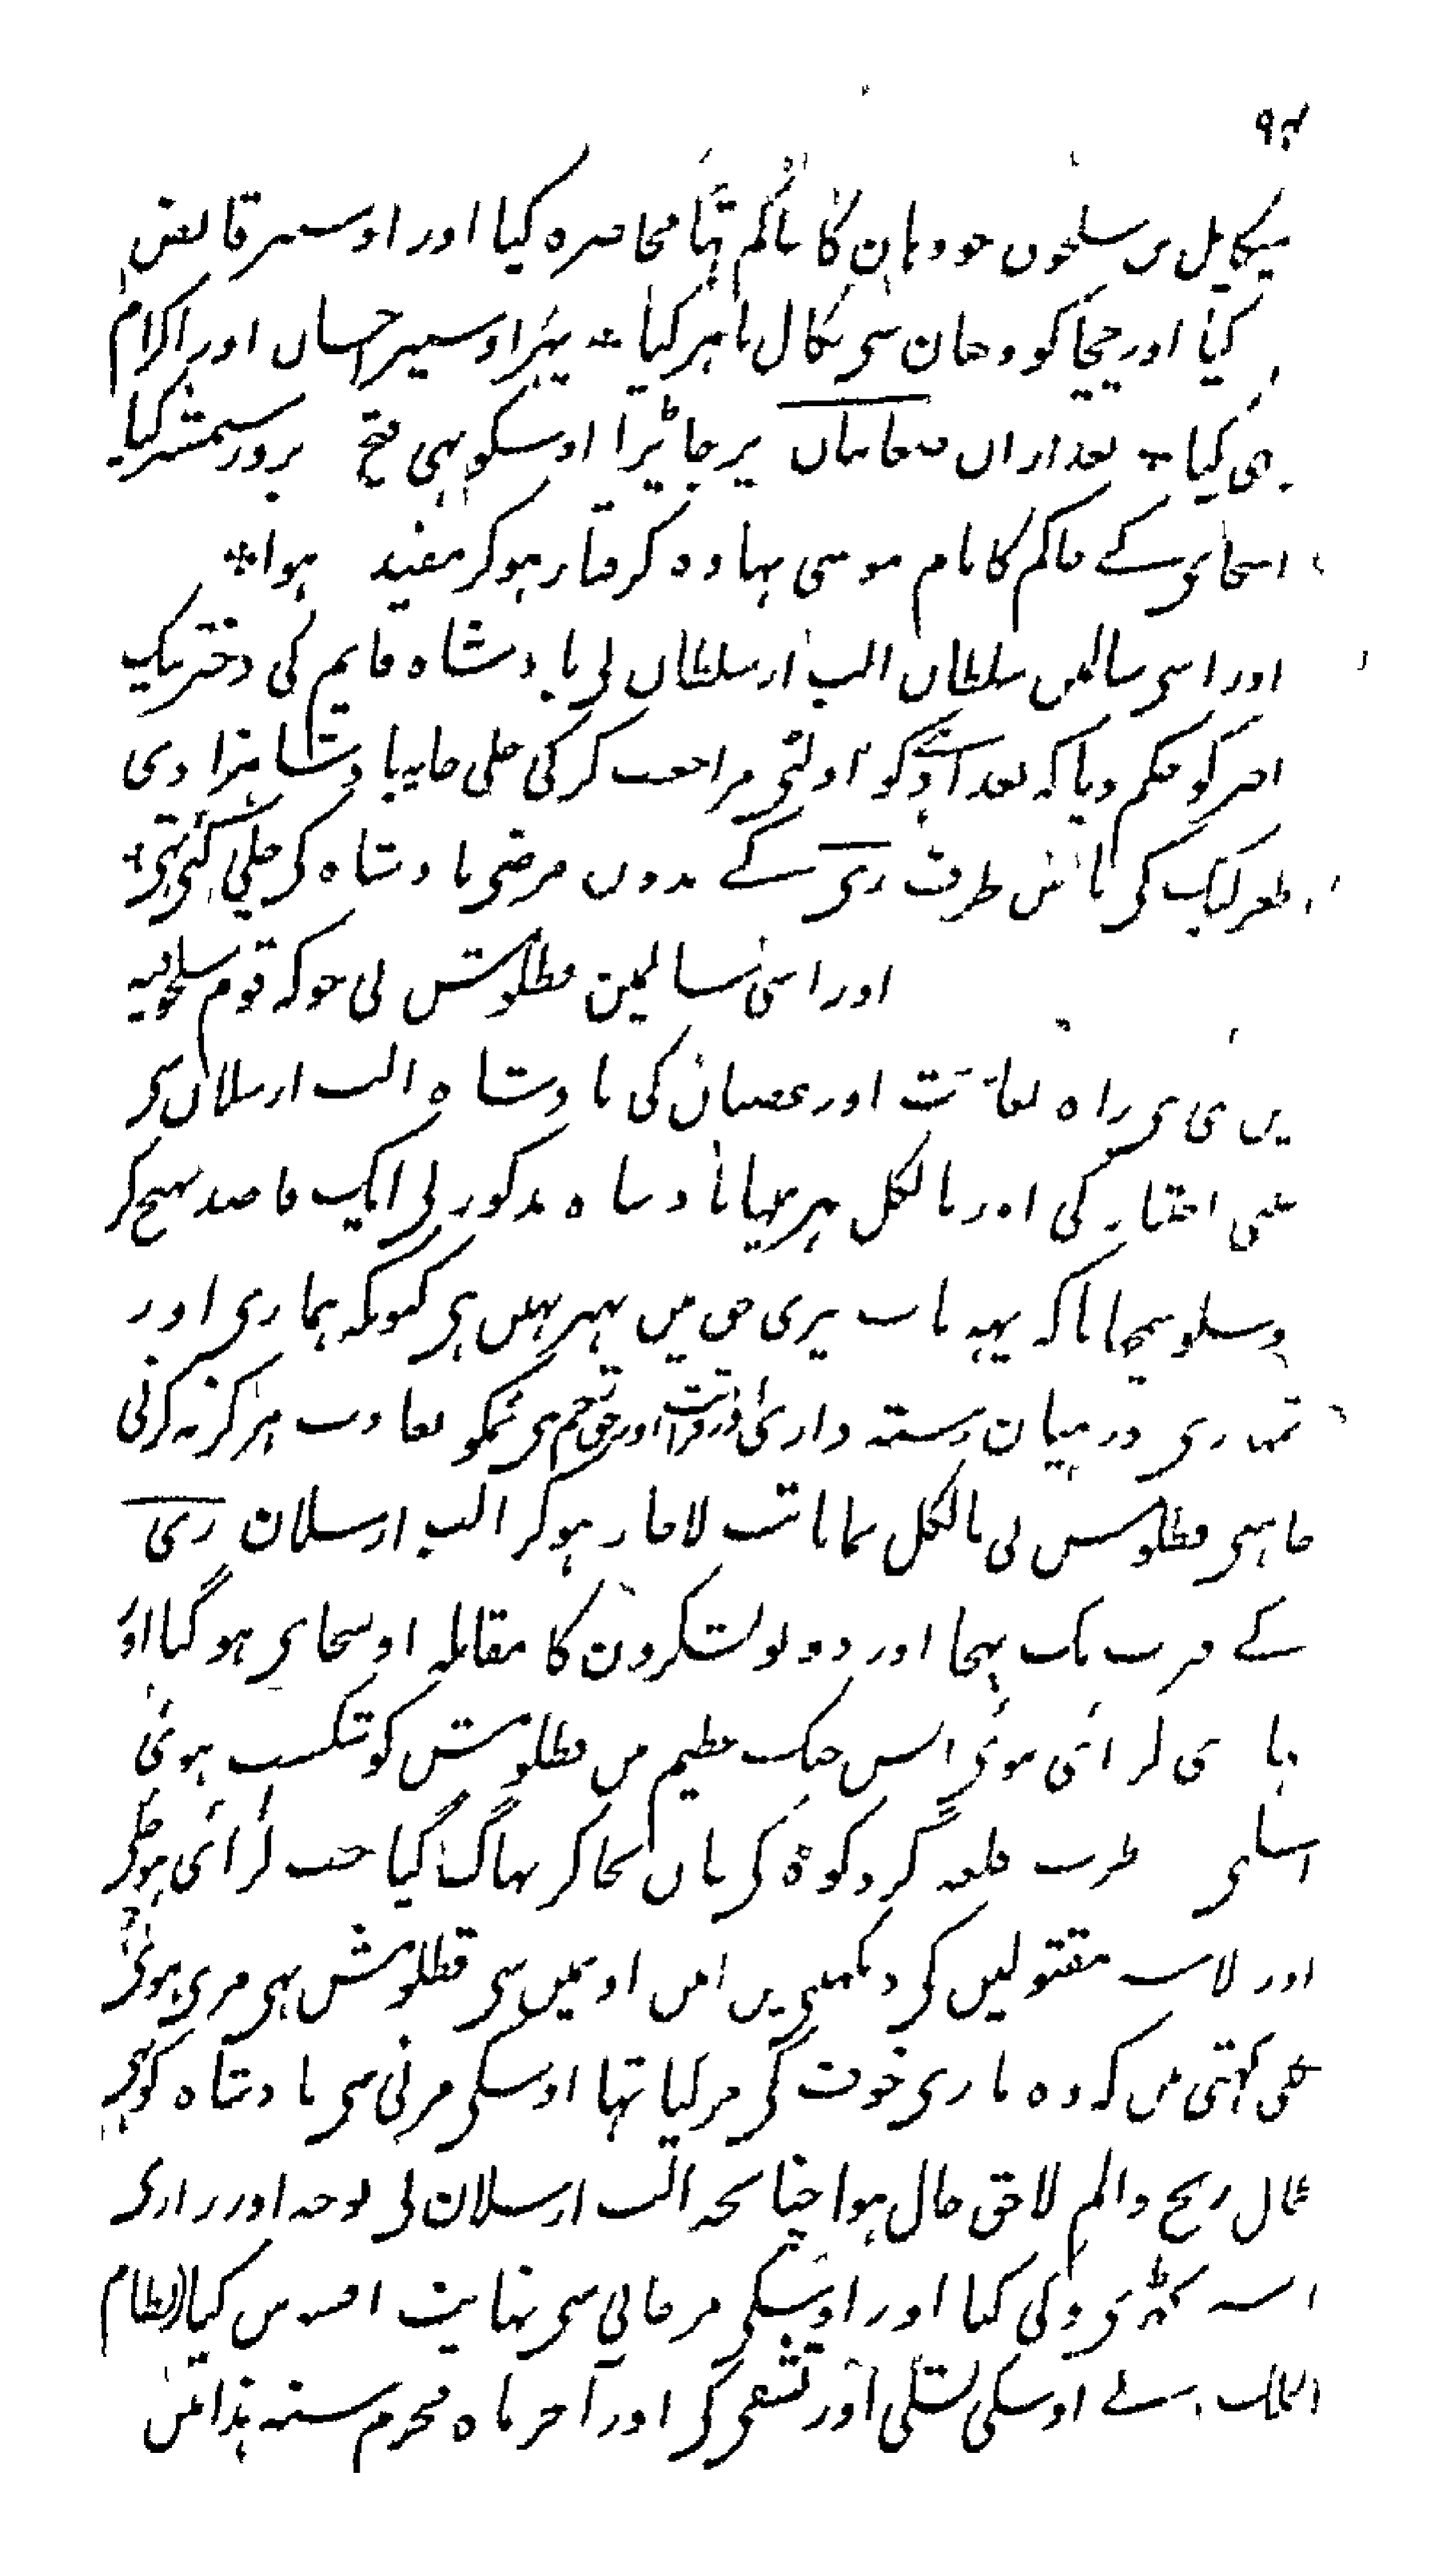 میکایل بن سلجوق جو وہان کا حاکم تہا محاصرہ کیا اور اوسپر قابض
کیا اور چچا کو وھان سی نکال باہر کیا ؞ پہر اوسپر احسان اور اکرام
بہی کیا ؞ بعد ازاں صغانیاں پر جا پڑا اوسکو بہی فتح بزور شمشیر کیا
اسجای کے حاکم کا نام موسی تہا وہ گرفتار ہوکر مقید ہوا ؞
اور اسی سالمیں سلطان الپ ارسلان نی بادشاہ قایم کی دختر نیک
اختر کو حکم دیا کہ بغداد کو اولٹی مراجعت کر کی چلی جایہ بادشاہزادی
طغرلبک کی پاس طرف ری کے بدون مرضی بادشاہ کی چلی گئی تہی ؞
اور اسی سالمین قطلومش نی جو کہ قوم سلجوقیہ
میں سی ہی راہ بغاوت اور عصیان کی بادشاہ الپ ارسلان سی
اختیار کی اور بالکل پہر بیٹہا بادشاہ مذکور نی ایک قاصد بہیج کر
اوسکو سمجھایا کہ یہہ بات تیری حق میں بہتر نہیں ہی کیونکہ ہماری اور
تمہاری درمیان رشتہ داری اور قرابت اور حق رحم ہی تمکو بغاوت ہرگز نہ کرنی
چاہئی قطلومش نی بالکل نمانا تب لاچار ہوکر الپ ارسلان ری
کے قریب تک پہنچا اور دونو لشکرون کا مقابلہ اوسجای ہو گیا اور
لڑائی ہوئی اس جنگ عظیم میں قطلومش کو شکست ہوئی
اسلئی طرف قلعہ گردکوہ کی جان بچا کر بہاگ گیا جب لڑائی ہوچکی
اور لاش مقتولین کی دیکہنی میں آئیں اونمیں سی قطلومش بہی مری ہوئی
کہتی ہیں کہ وہ ماری خوف کی مر گیا تہا اوسکی مرنی سی بادشاہ کو بہی
کمال رنج والم لاحق حال ہوا چنانچہ الپ ارسلان نی نوحہ اور زاری
کیا اور اوسکی مر جانی سی نہایت افسوس کیا نظام
الملک نے اوسکی تسلی اور تشفی کی اور آخر ماہ محرم سنہ ہذا میں